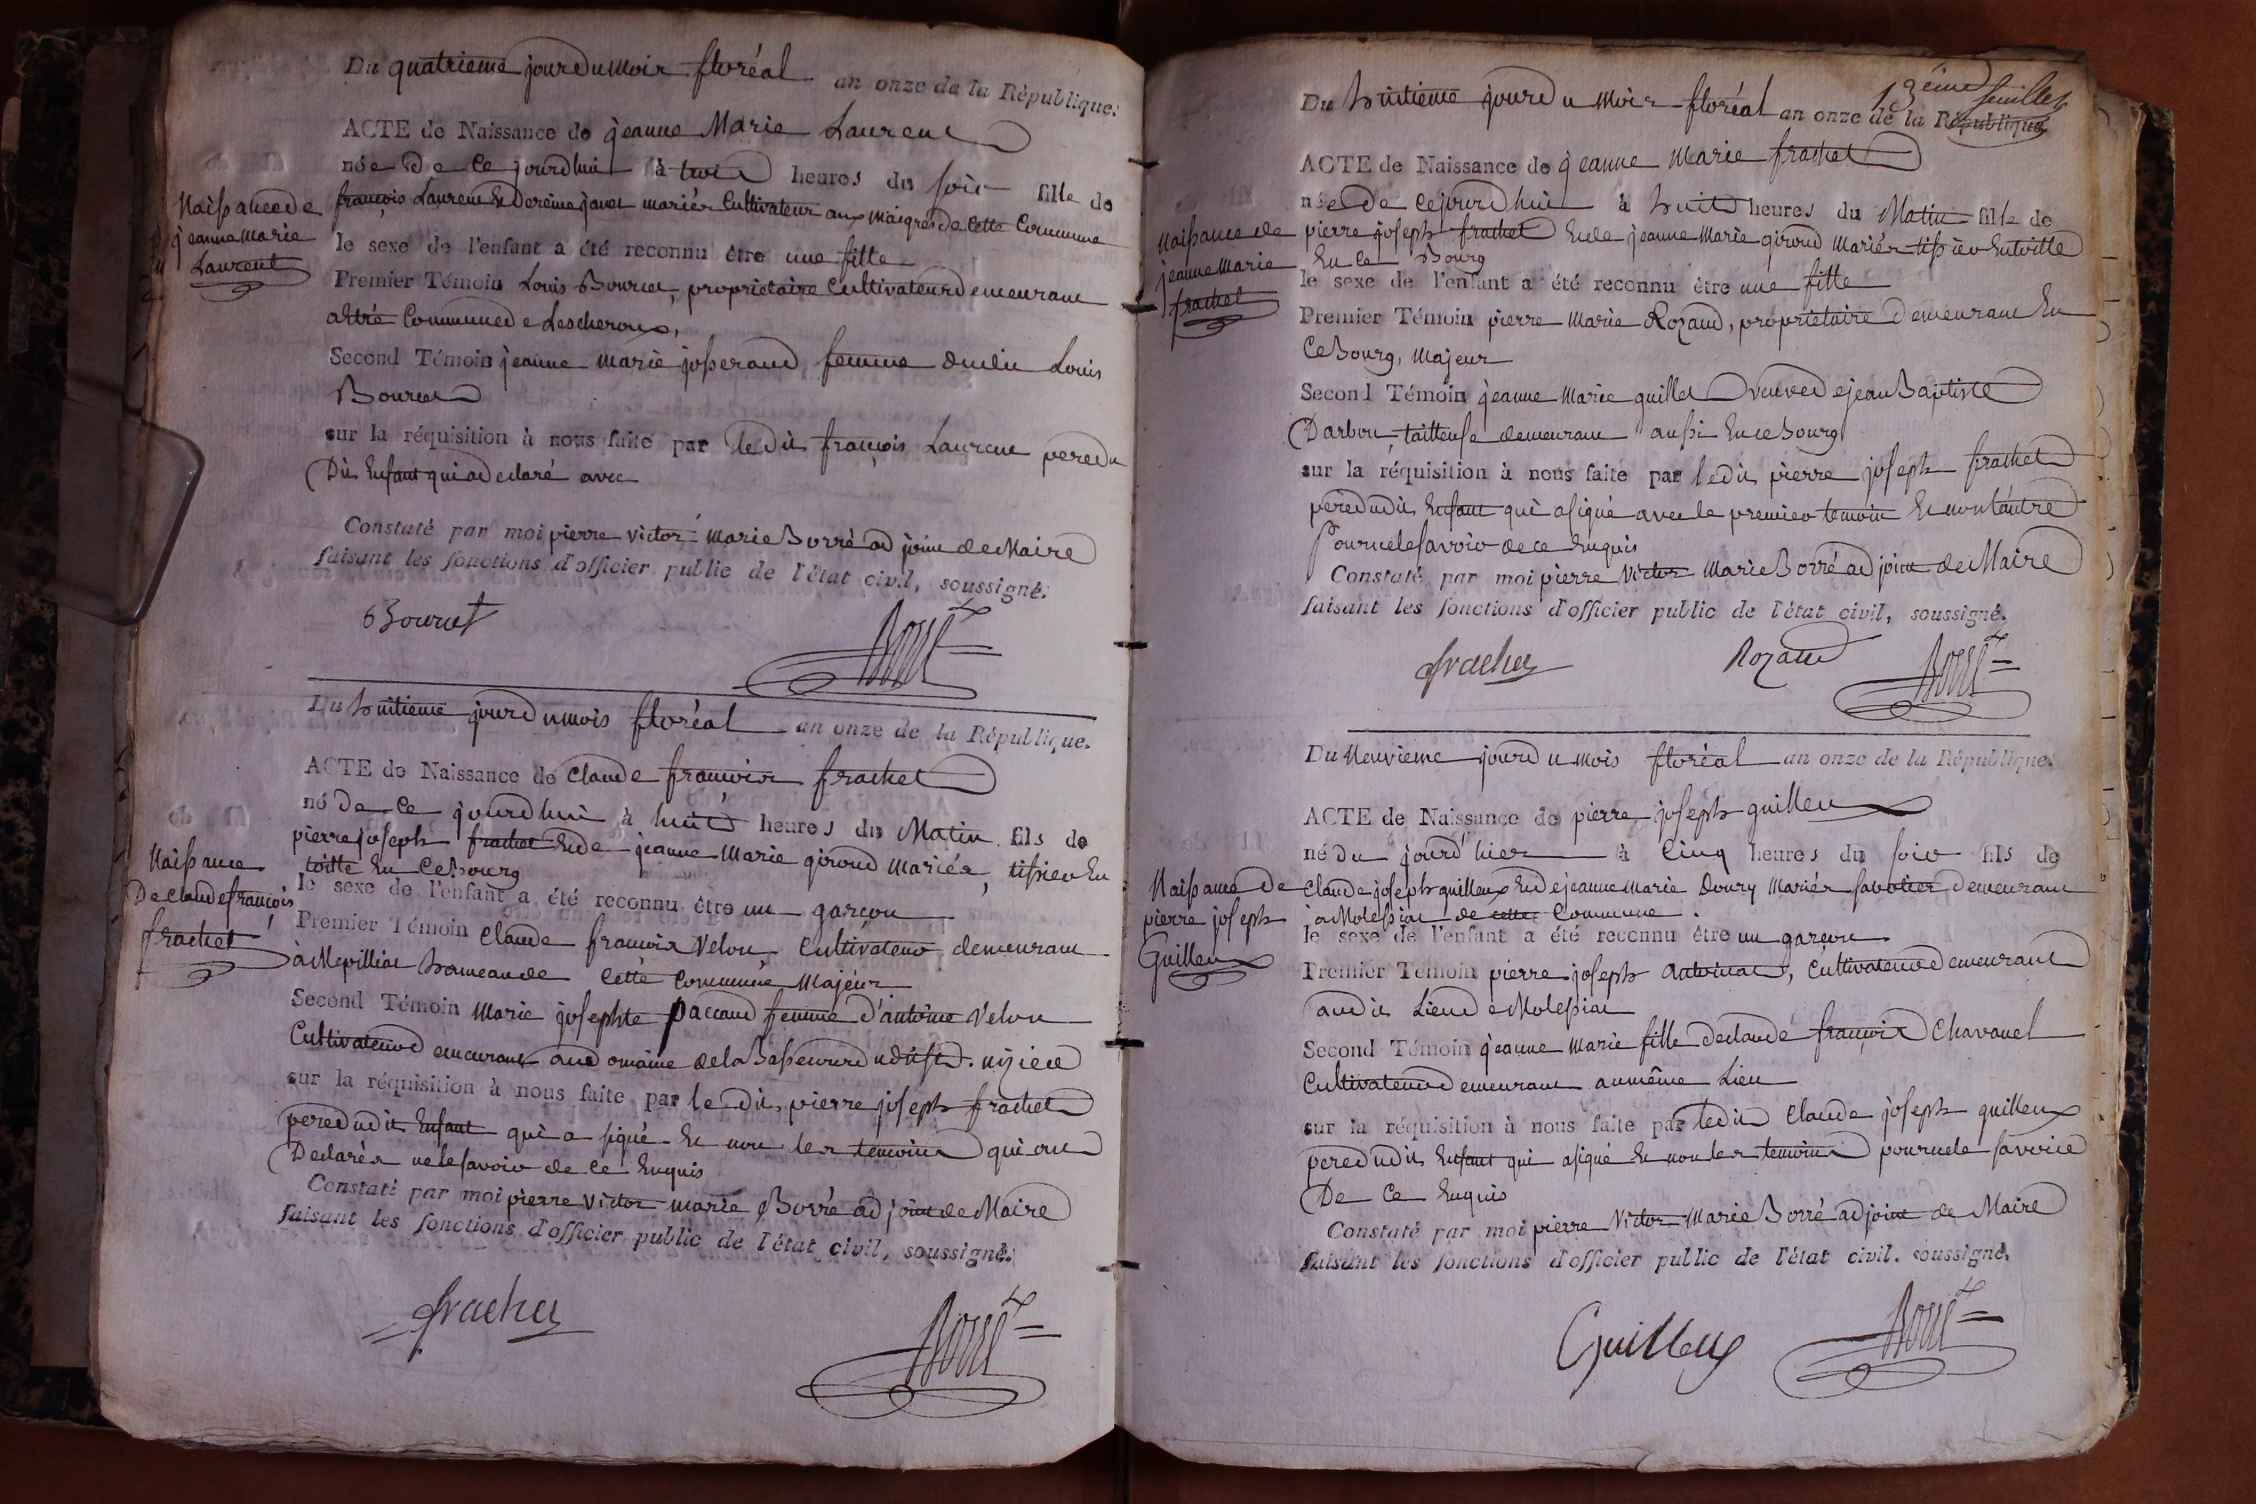 Du quatrieme jour du mois floréal an onze de la République.
ACTE de Naissance de jeanne Marie Laurent
née de ce jourdhui à trois heures du soir fille de
françois Laurent Et de reine javet mariés Cultivateur aux maigres de Cette Commune
Naissance de
jeanne marie
Laurent
le sexe de l'enfant a été reconnu être une fille
Premier Témoin Louis Bourcet, propriétaire Cultivateur demeurant
Commune de Lescheroux,
Second Témoin jeanne marie josserand femme dudit Louis
Bourcet
sur la réquisition à nous faite par le dit françois Laurent pere du
Dit Enfant qui a declaré avec
Constaté par moi pierre victor marie Borré adjoint de Maire
faisant les fonctions d'officier public de l'état civil, soussigné.
Bourcet
Borré
Du huitieme jour du mois floréal an onze de la République.
ACTE de Naissance de Claude françois frachet
né de ce jourdhui à huit heures du Matin fils de
pierre joseph frachet Et de jeanne Marie giroud Mariés, tissier En
toille En Ce Bourg
Naissance
De claude françois
frachet
le sexe de l'enfant a été reconnu être un garçon
Premier Témoin Claude françois Velon Cultivateur demeurant
à Mepilliat hameau de Cette Commune Majeur
Second Témoin Marie josephte paccaud femme d'antoine Velon
Cultivateur demeurant au domaine de la Basse
sur la réquisition à nous faite par le dit, pierre joseph frachet
pere dudit Enfant qui a signé Et non les temoins qui ont
Declarés ne le savoir de ce Enquis
Constaté par moi pierre victor marie Borré adjoint de Maire
faisant les fonctions d'officier public de l'état civil, soussigné.
frachet
Borré
13eme feuillet
Du huitieme jour du mois floréal an onze de la République
ACTE de Naissance de jeanne Marie frachet
née de cejourdhui à huit heures du Matin fille de
pierre joseph frachet Et de jeanne Marie giroud Mariés tissier En toille
En Ce Bourg
Naissance de
jeanne Marie
frachet
le sexe de l'enfant a été reconnu être une fille
Premier Témoin pierre Marie Rozand, propriétaire demeurant En
Ce Bourg, majeur
Second Témoin jeanne Marie guillet veuve de jean Baptiste
Darbon, tailleuse demeurant aussi En ce Bourg
sur la réquisition à nous faite par ledit pierre joseph frachet
pere dudit Enfant qui a signé avec le premier temoin Et non l'autre
Pour ne le savoir de ce Enquis
Constaté par moi pierre Victor Marie Borré adjoint de Maire
faisant les fonctions d'officier public de l'état civil, soussigné.
frachet
Rozand
Borré
Du Neuvieme jour du mois floréal an onze de la République.
ACTE de Naissance de pierre joseph guilleux
né du jourd'hier à Cinq heures du soir fils de
Claude joseph guilleux Et de jeanne marie Doury Mariés sabotier demeurant
à Molessiat de cette Commune.
Naissance De
pierre joseph
Guilleux
le sexe de l'enfant a été reconnu être un garçon
Premier Témoin pierre joseph Cultivateur demeurant
audit Lieu de Molessiat
Second Témoin jeanne marie fille de claude françois Chavanel
Cultivateur demeurant au même Lieu
sur la réquisition à nous faite par ledit Claude joseph guilleux
pere dudit Enfant qui a signé Et non les temoins pour ne le savoir
De Ce Enquis
Constaté par moi pierre Victor Marie Borré adjoint de Maire
faisant les fonctions d'officier public de l'état civil. soussigné.
Guilleux
Borré